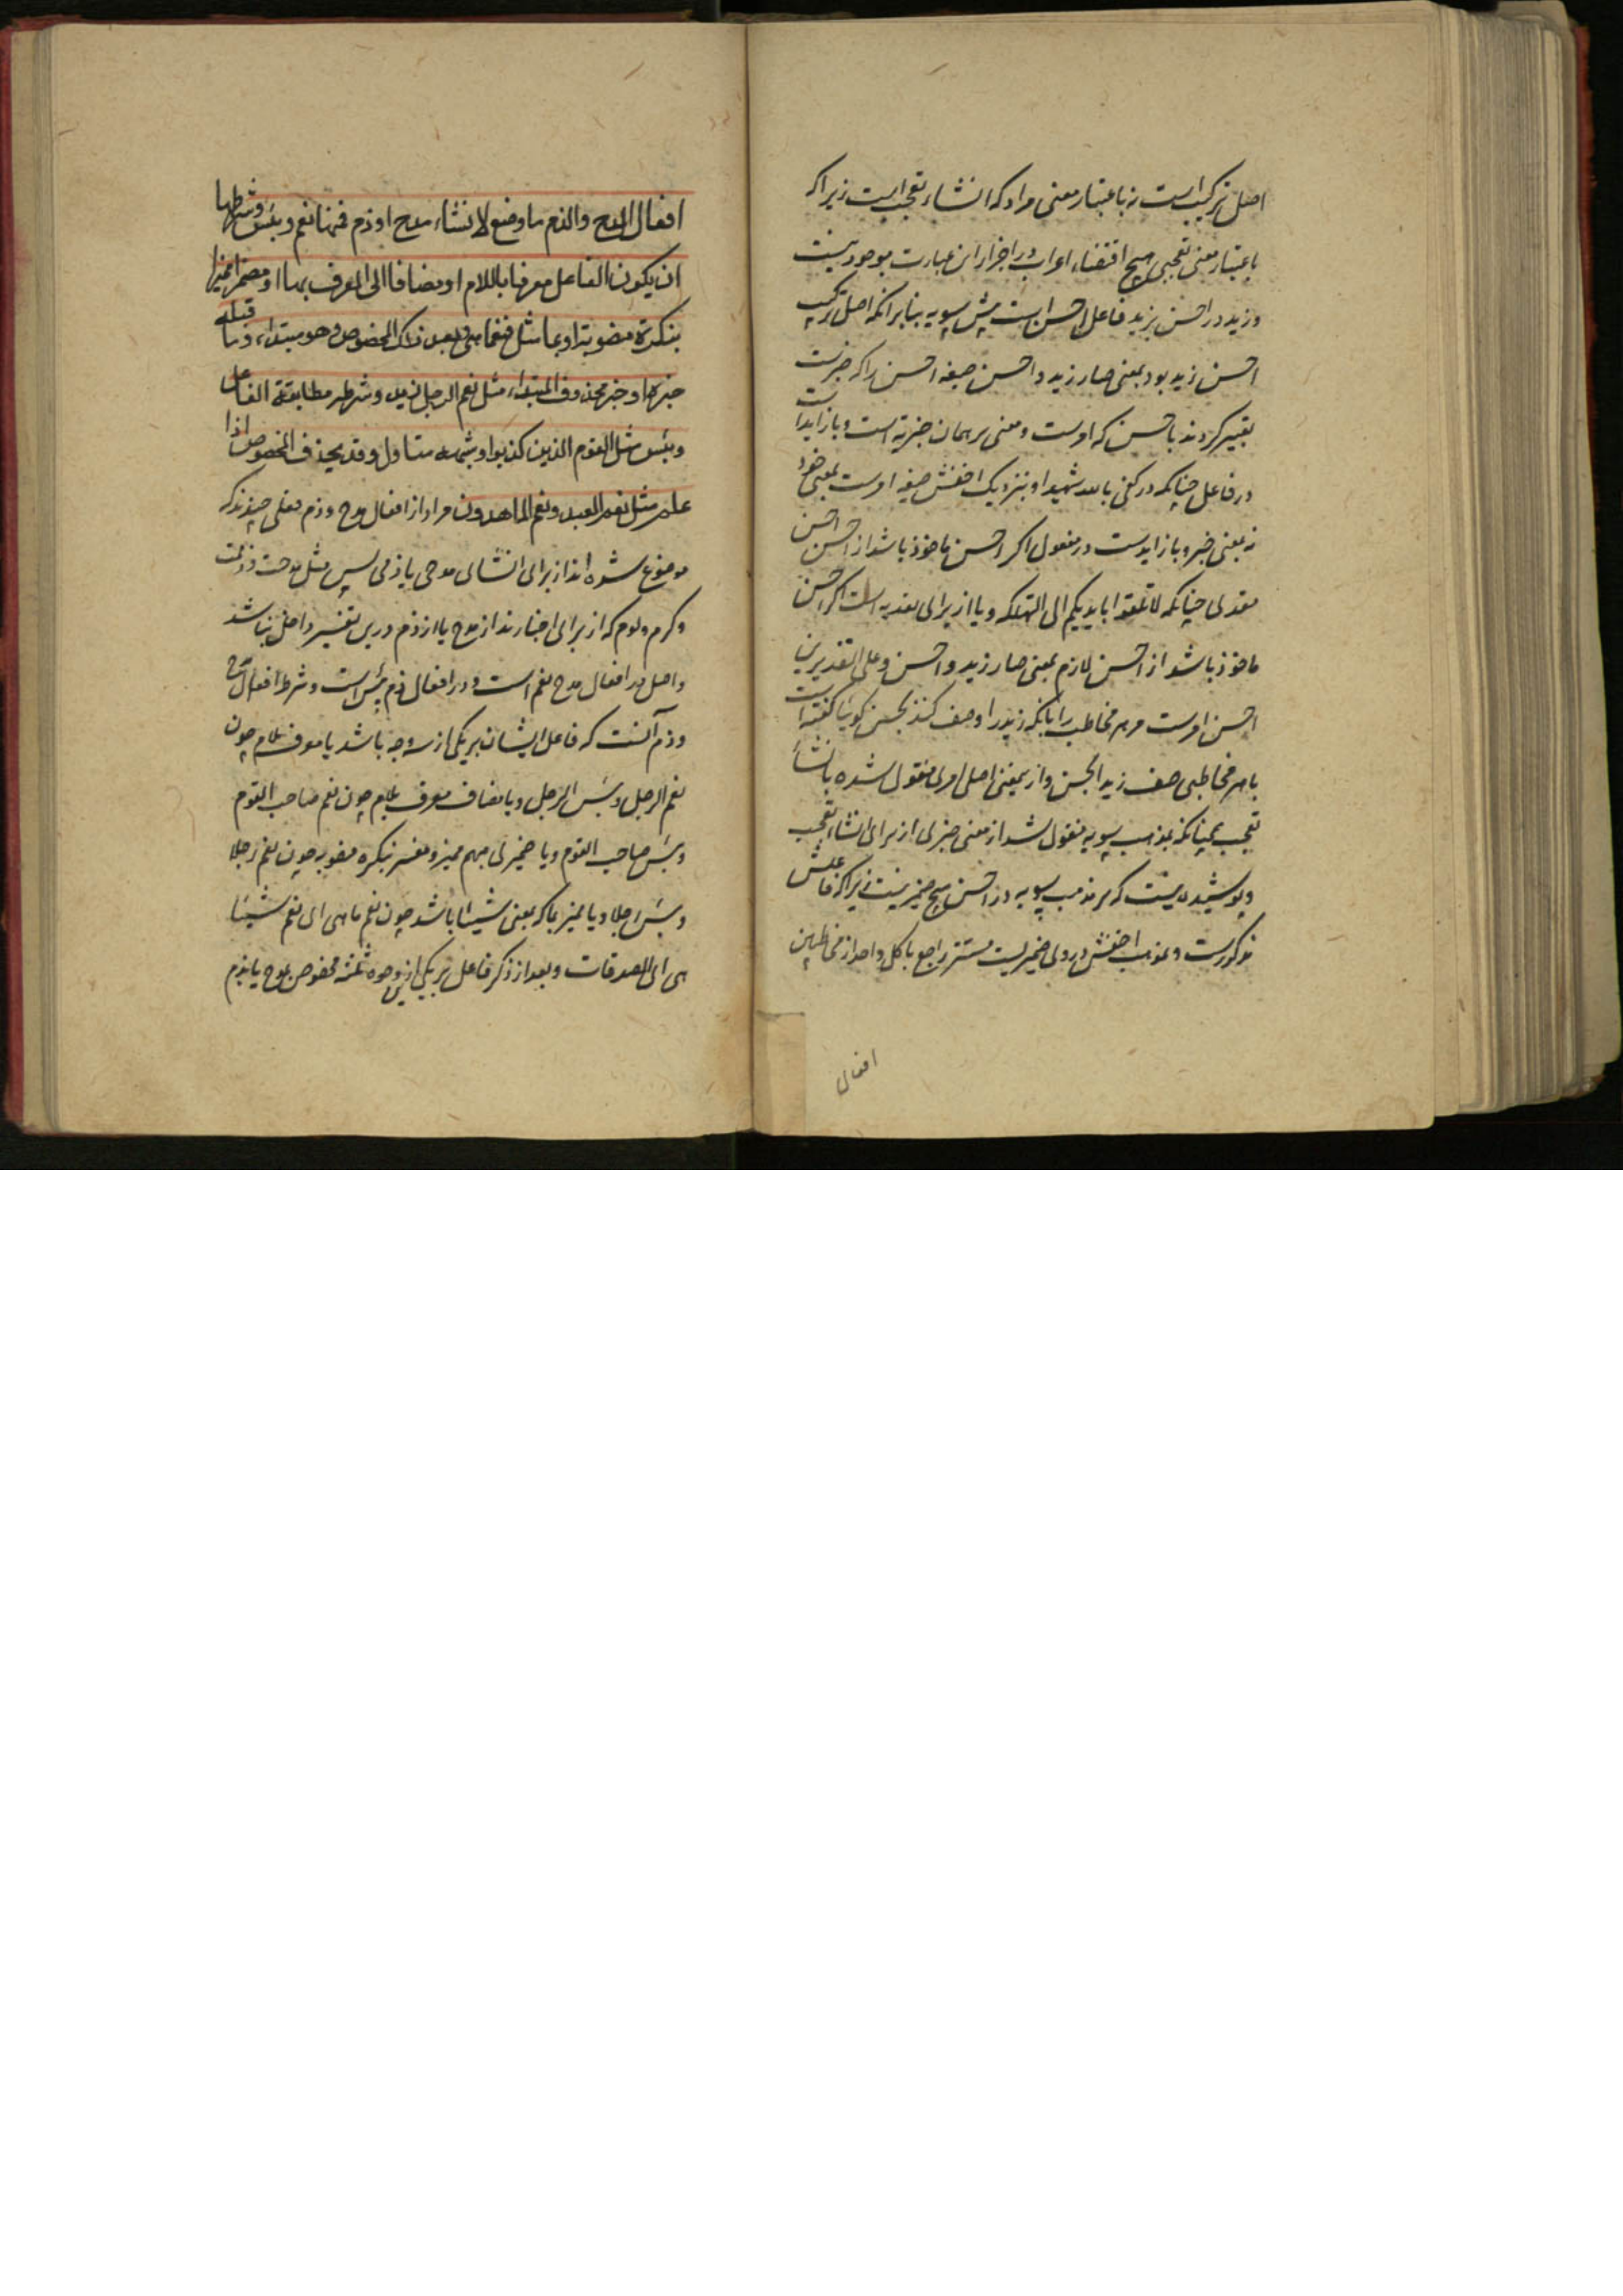 اصل ترکیب است نه باعتبار معنی مراد که انشاء تعجب است زیرا که
باعتبار معنی تعجبی هیچ اقتضاء اعراب در اجزاء این عبارت موجود نیست
و زید در احسن بزید فاعل احسن است پیش سیبویه بنا بر آنکه اصل ترکیب
احسن زید بود بمعنی صار زید ذا حسن صیغه احسن را که خبرست
تغییر کردند باحسن که امرست و معنی بر همان خبریه است و با زاید است
در فاعل چنانکه در کفی بالله شهیدا و بنزدیک اخفش صیغه امرست بمعنی خود
نه بمعنی خبر و با زایدست در مفعول اگر احسن ماخوذ باشد از احسن
متعدی چنانکه لا تلقوا بایدیکم الی التهلکه و یا از برای تعدیه است اگر احسن
ماخوذ باشد از احسن لازم بمعنی صار زید ذا حسن و علی التقدیرین
احسن امرست مر هر مخاطب را بانکه زید را وصف کند بحسن گوئیا گفته است
با هر مخاطبی صف زیدا بالحسن و ازین معنی اصلی امری منقول شده بانشاء
تعجب همچنانکه بمذهب سیبویه منقول شد از معنی خبری از برای انشاء تعجب
و پوشیده نیست که بر مذهب سیبویه در احسن هیچ ضمیر نیست زیرا که فاعلش
مذکورست و بمذهب اخفش در وی ضمیریست مستتر راجع با کل واحد از مخاطبین
افعال
افعال المدح والذم ما وضع لانشاء مدح او ذم فمنها نعم وبئس وشرطها
ان یکون الفاعل معرفا باللام او مضافا الی المعرف بها او مضمرا ممیزا
بنکرة منصوبة او بما مثل فنعما هی وبعد ذلک المخصوص وهو مبتداء وما قبله
خبرها او خبر محذوف المبتداء مثل نعم الرجل زید وشرطه مطابقة الفاعل
وبئس مثل القوم الذین کذبوا وشبهه متاول وقد یحذف المخصوص اذا
علم مثل نعم العبد ونعم الماهدون مراد از افعال مدح و ذم فعلی چندند که
موضوع شده اند از برای انشای مدحی یا ذمی پس مثل مدحت و ذممت
و کرم و لوم که از برای اخبارند از مدح یا از ذم درین تفسیر داخل نباشد
و اصل در افعال مدح نعم است و در افعال ذم بئس است و شرط افعال مدح
و ذم آنست که فاعل ایشان بر یکی از سه وجه باشد یا معرف بلام چون
نعم الرجل و بئس الرجل و یا مضاف معرف بلام چون نعم صاحب القوم
و بئس صاحب القوم و یا ضمیری مبهم ممیز و مفسر بنکره منصوبه چون نعم رجلا
و بئس رجلا و یا ممیز بما که بمعنی شیئا باشد چون نعم ما هی ای نعم شیئا
هی ای الصدقات و بعد از ذکر فاعل بر یکی ازین وجوه ثلثه مخصوص بمدح یا بذم